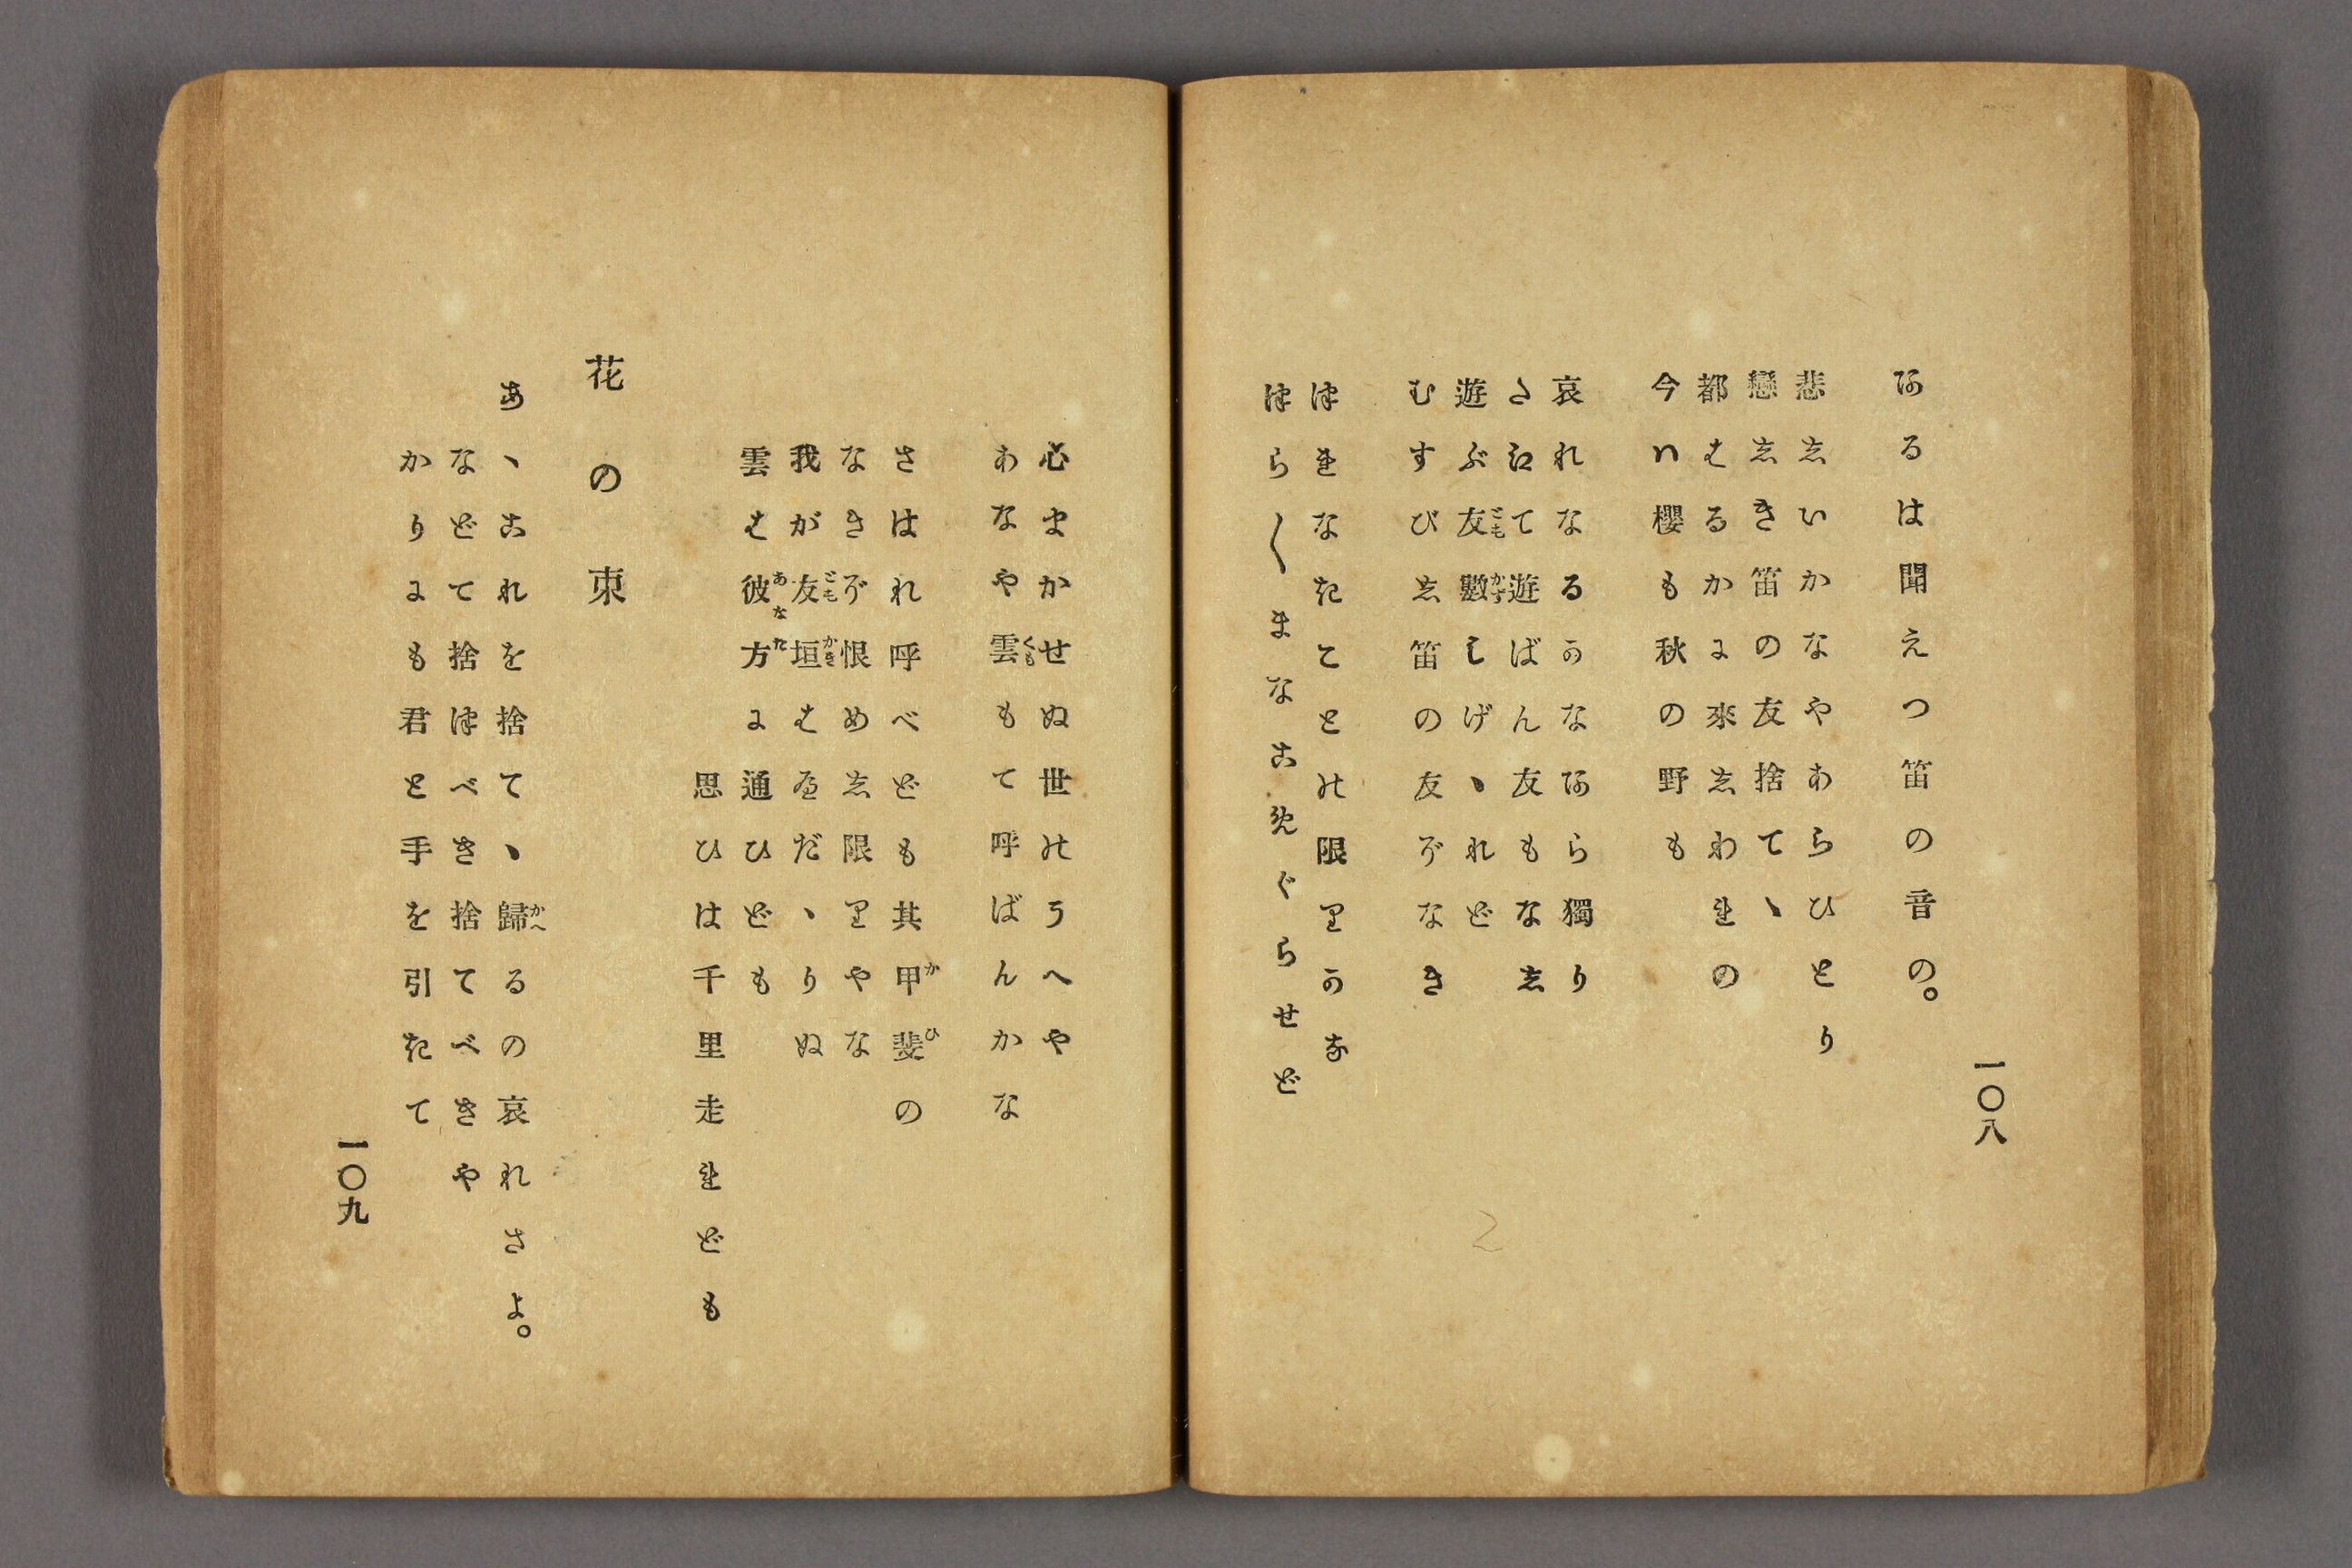 一〇八
あるは聞えつ笛の音の。
悲しいかなやあらひとり
戀しき笛の友捨てゝ
都はるかに來しわれの
今ハ櫻も秋の野も
哀れなるかなあら獨り
たえて遊ばん友もなし
遊ぶ友數しげゝれど
むすびし笛の友ぞなき
つれなきことの限りかな
つら〱まなこめぐらせど
心まかせぬ世のうへや
あなや雲もて呼ばんかな
さはれ呼べども其甲斐の
なきぞ恨めし限りやな
我が友垣はへだゝりぬ
雲は彼方に通ひども
思ひは千里走れども
花の束
あゝこれを捨てゝ歸るの哀れさよ。
などて捨つべき捨てべきや
かりにも君と手を引きて
一〇九